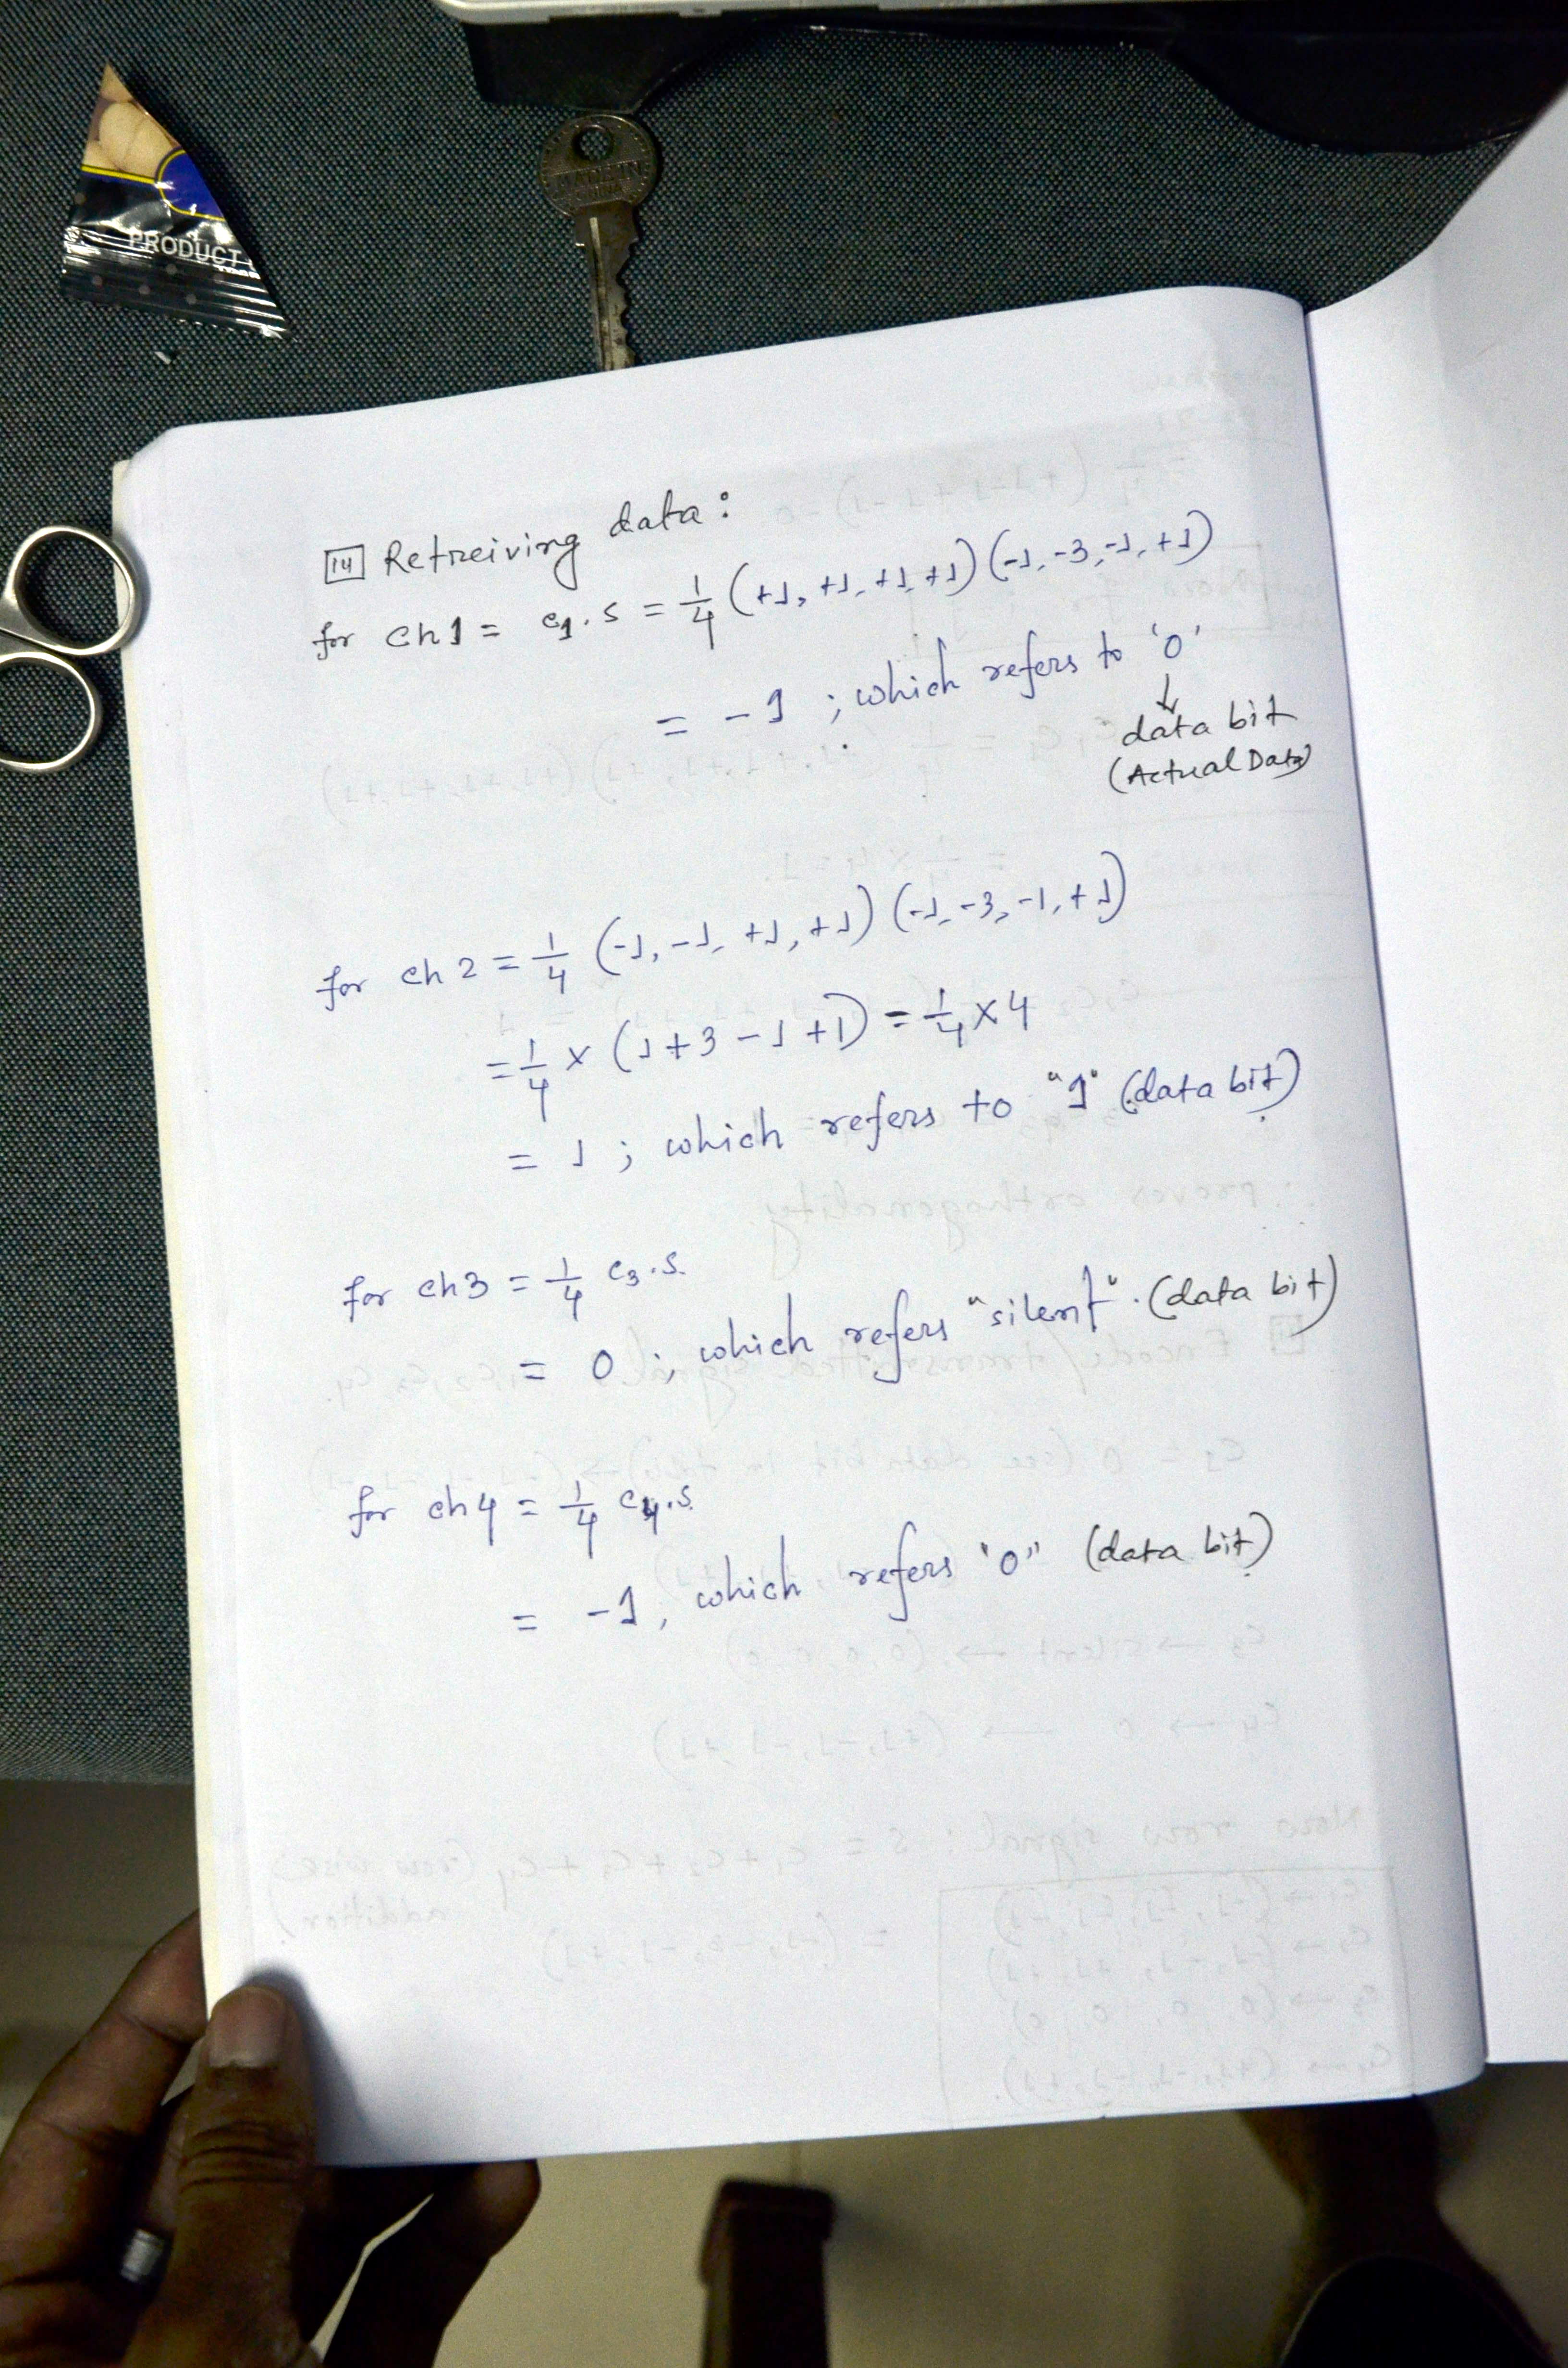 PRODUCT
MADE IN
14 Retreiving data:
for ch1 = c1.s = 1/4 (+1, +1, +1, +1) (-1, -3, -1, +1)
= -1 ; which refers to '0'
↓
data bit
(Actual Data)
for ch 2 = 1/4 (-1, -1, +1, +1) (-1, -3, -1, +1)
= 1/4 × (1+3-1+1) = 1/4 × 4
= 1 ; which refers to "1" (data bit)
for ch3 = 1/4 c3.s.
= 0 ; which refers "silent". (data bit)
for ch4 = 1/4 c4.s.
= -1, which refers "0" (data bit)